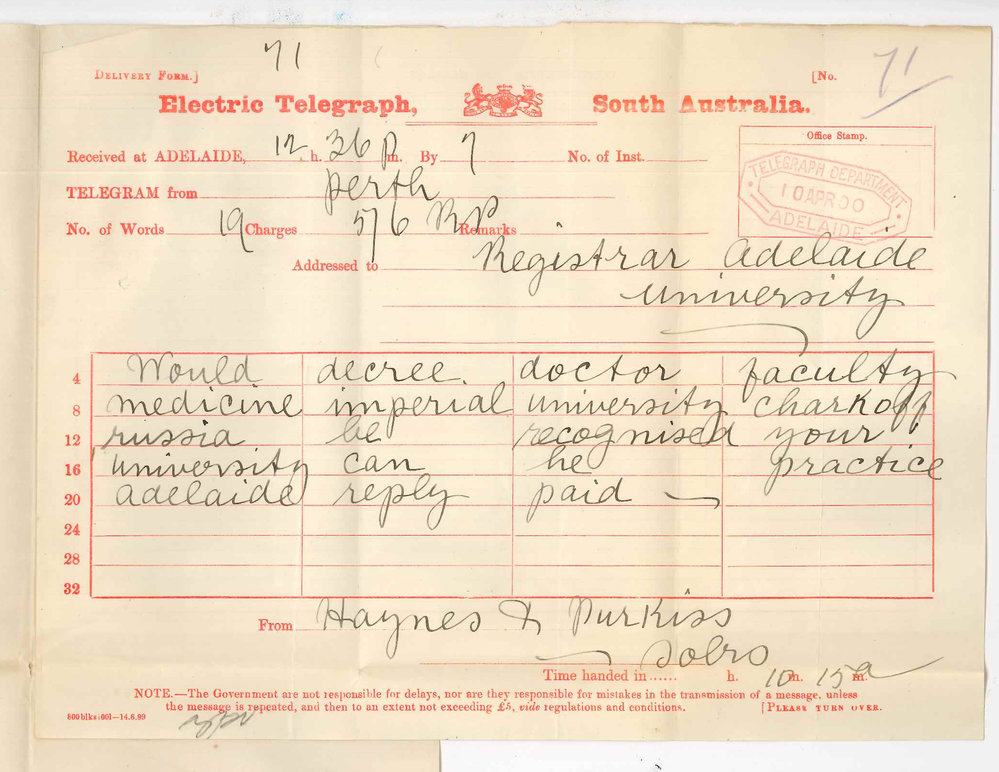 71
DELIVERY FORM.] [No. 71
Electric Telegraph, South Australia.
Office Stamp.
Received at ADELAIDE, 12 h. 36 p m. By 7 No. of Inst.
TELEGRAPH DEPARTMENT
10 APR 00
ADELAIDE
TELEGRAM from perth
No. of Words 19 Charges 5/6 RP Remarks
Addressed to Registrar Adelaide
University
4 Would decree. doctor faculty
8 medicine imperial university charkoff
12 russia be recognised your
16 university can he practice
20 adelaide reply paid —
24
28
32
From Haynes & Purkiss
Solrs
Time handed in ...... h. 10 m. 15 a m.
NOTE.—The Government are not responsible for delays, nor are they responsible for mistakes in the transmission of a message, unless
the message is repeated, and then to an extent not exceeding £5, vide regulations and conditions. [PLEASE TURN OVER.
800 blks:601—14.6.99